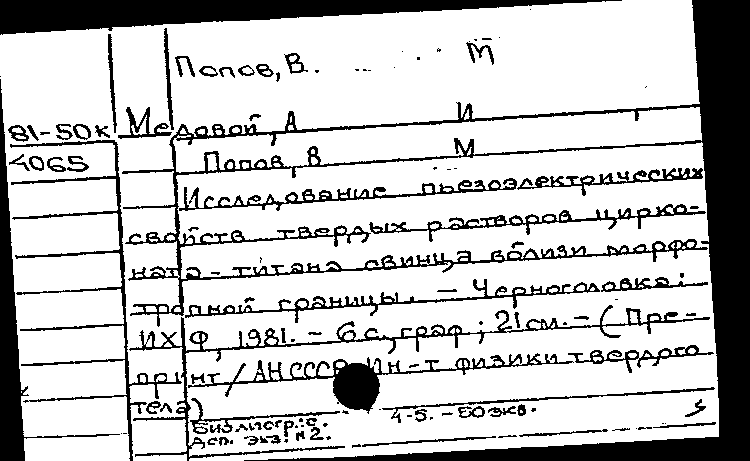 Попов, В. М
81-50к Медовой, А И
4065 Попов, В М
Исследование пьезоэлектрических
свойств твердых растворов цирко-
ната-титана свинца вблизи морфо-
тропной границы. - Черноголовка:
ИХФ, 1981. - 6 с., граф; 21 см. - (Пре-
принт / АН СССР Ин-т физики твердого
тела)
Библиогр.: с. 4-5. - 50 экз.
Доп. экз: №2.